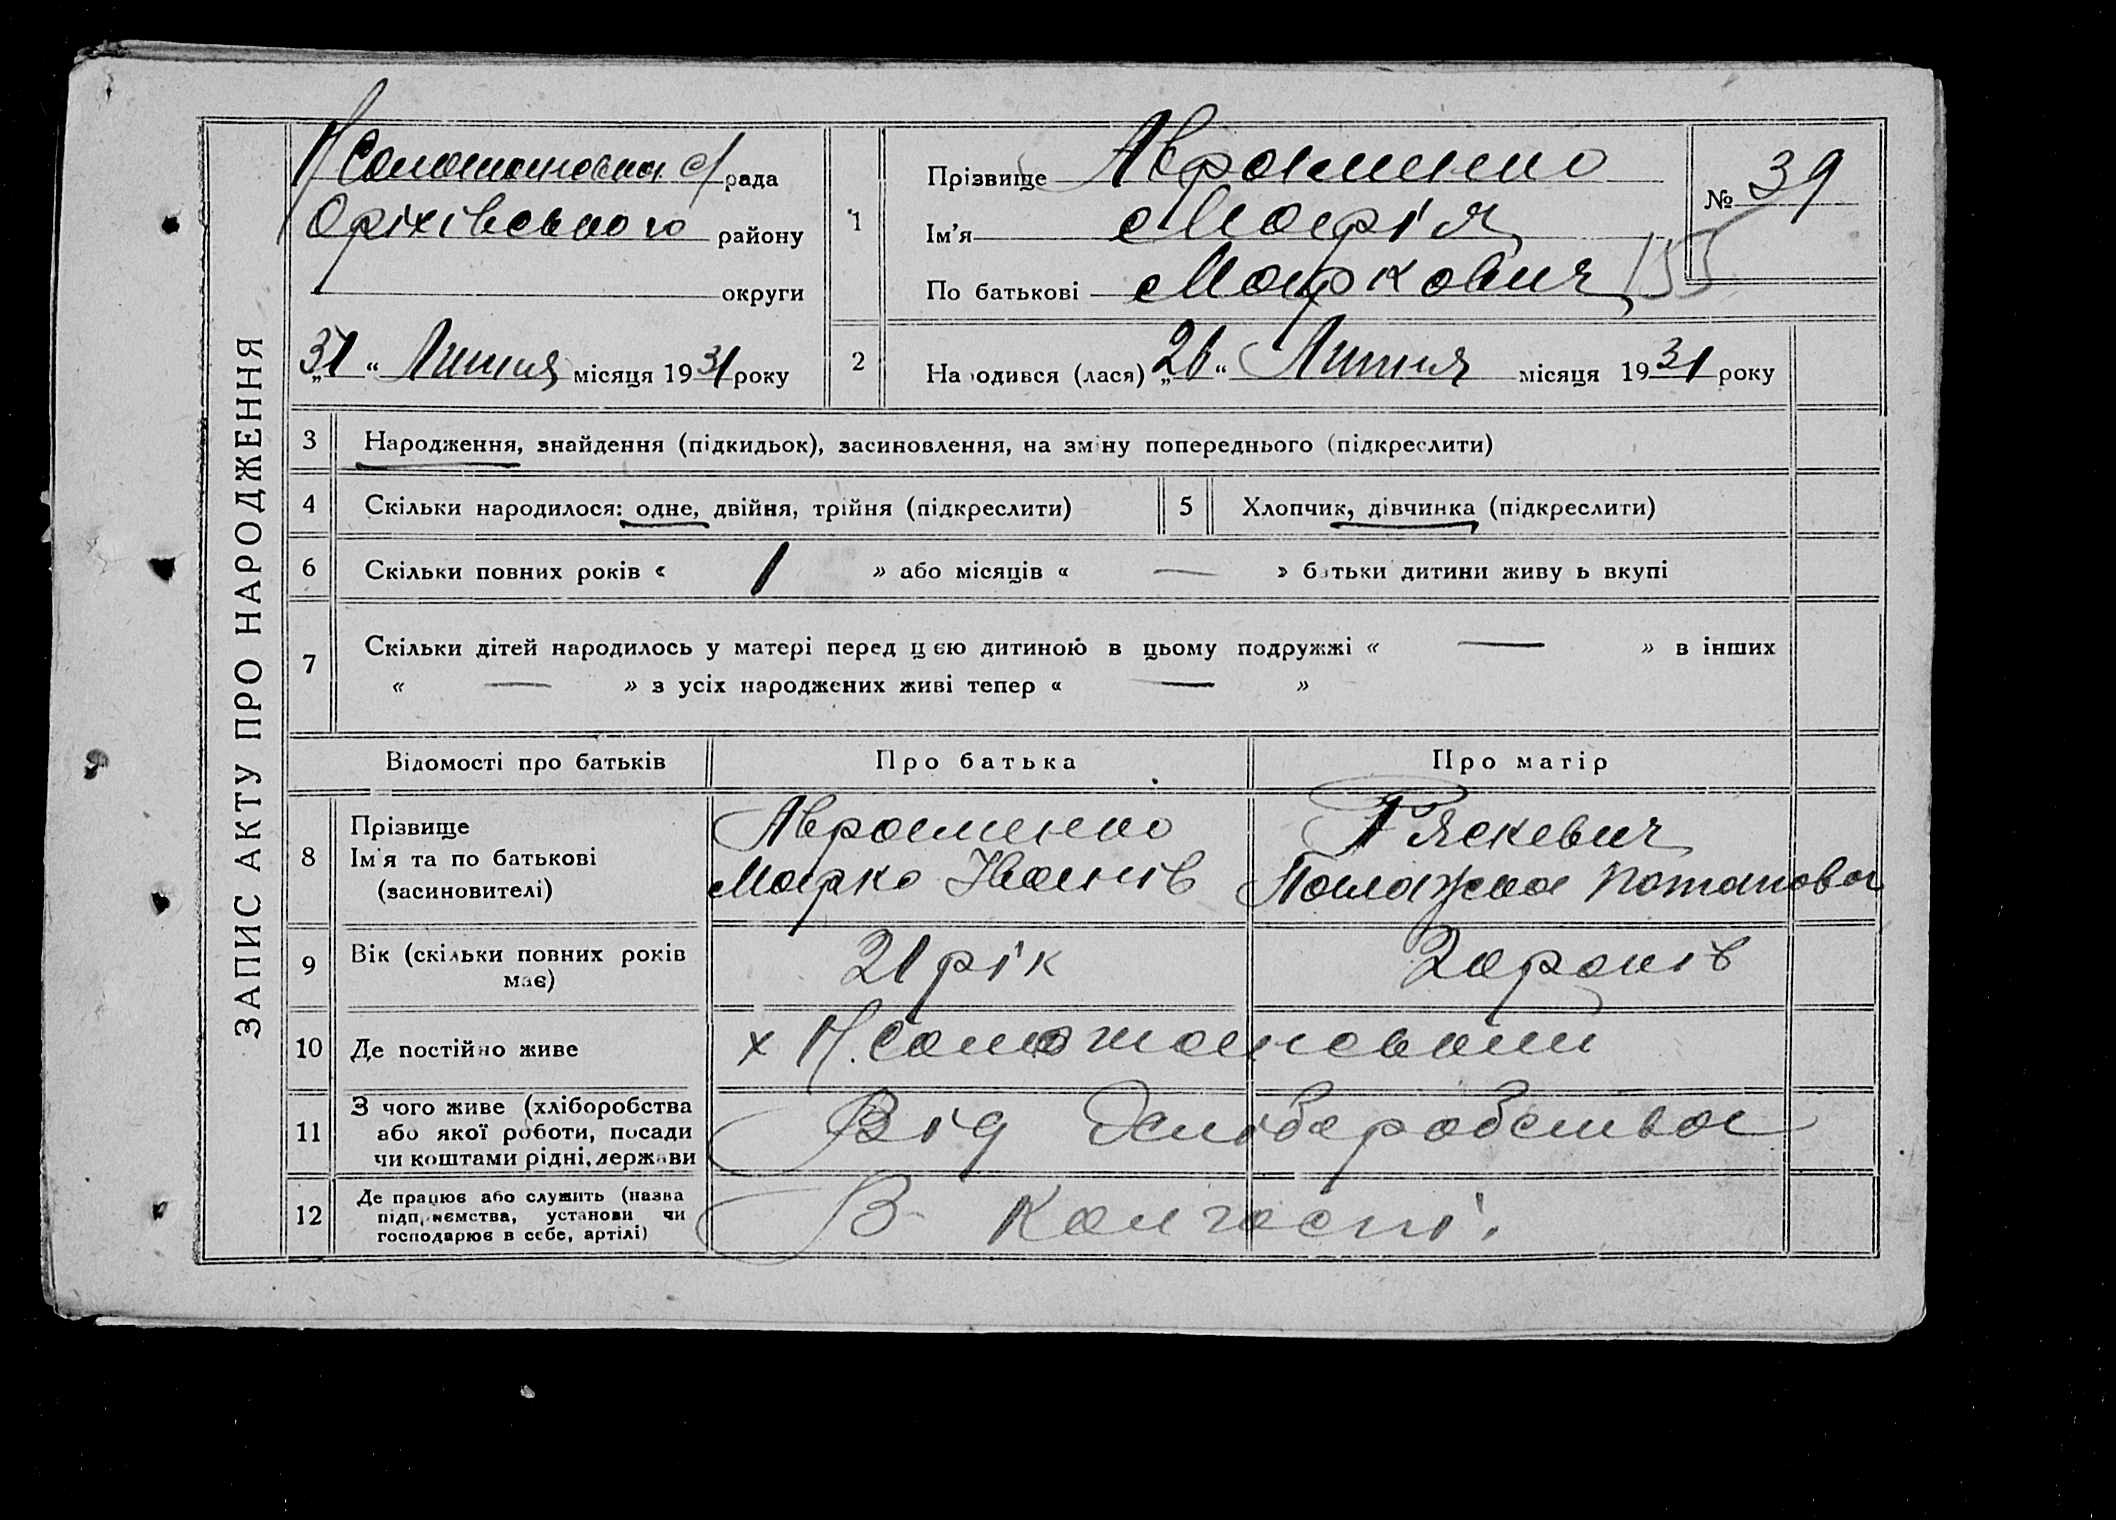 ЗАПИС АКТУ ПРО НАРОДЖЕННЯ
с/рада
Оріхівського району
округи
„31“ Липня місяця 1931 року
1
Прізвище Авраменко
Ім'я Марія
По батькові Маркович
№ 39
155
2
Народився (лася) „26“ Липня місяця 1931 року
3 Народження, знайдення (підкидьок), засиновлення, на зміну попереднього (підкреслити)
4 Скільки народилося: одне, двійня, трійня (підкреслити) 5 Хлопчик, дівчинка (підкреслити)
6 Скільки повних років « 1 » або місяців « — » батьки дитини живуть вкупі
7 Скільки дітей народилось у матері перед цією дитиною в цьому подружжі « — » в інших
« — » з усіх народжених живі тепер « — »
Відомості про батьків Про батька Про матір
8 Прізвище
Ім'я та по батькові
(засиновителі)
Авраменко
Марко Іванів
Ряскевич
Палажка Потапова
9 Вік (скільки повних років
має)
21 рік
20 років
10 Де постійно живе
х Н.
11 З чого живе (хліборобства
або якої роботи, посади
чи коштами рідні, держави
Від хліборобства
12 Де працює або служить (назва
підприємства, установи чи
господарює в себе, артілі)
В колгоспі.